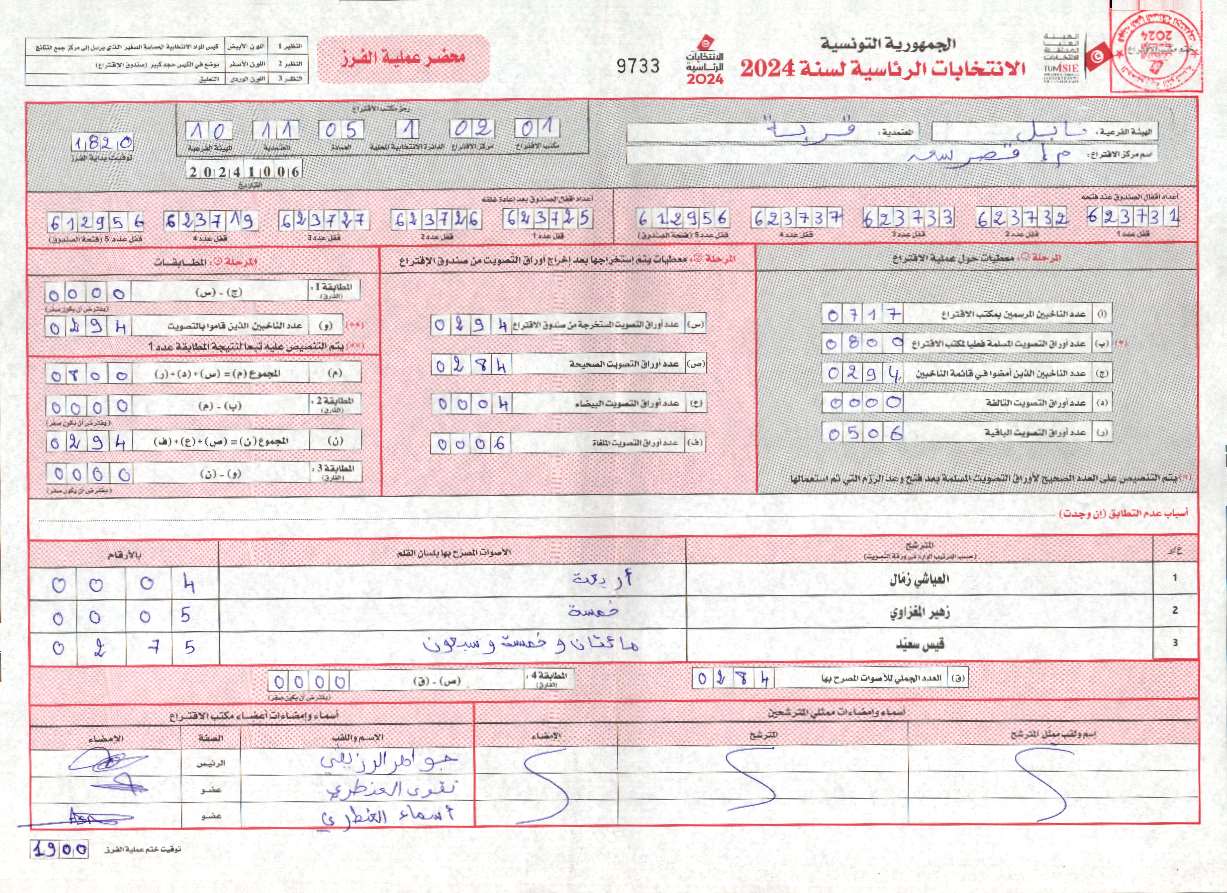 الجمهورية التونسية
الانتخابات الرئاسية لسنة 2024
الهيئة العليا المستقلة للانتخابات
TUNISIE
الانتخابات الرئاسية 2024
9733
محضر عملية الفرز
النظير 1 اللون الأبيض
النظير 2 اللون الأصفر يوضع في الكيس حجم كبير (صندوق الاقتراع)
النظير 3 اللون الوردي التعليق
الهيئة الفرعية: نابل المعتمدية: قربة
اسم مركز الاقتراع: م إ قصر سعد
رمز مكتب الاقتراع
01 02 1 05 11 10
مكتب الاقتراع مركز الاقتراع الدائرة الانتخابية المحلية العمادة المعتمدية الهيئة الفرعية
20241006
التاريخ
1820
توقيت بداية الفرز
أعداد أقفال الصندوق عند فتحه
623731 623732 623733 623737 612956
قفل عدد 1 قفل عدد 2 قفل عدد 3 قفل عدد 4 قفل عدد 5 (فتحة الصندوق)
أعداد أقفال الصندوق بعد إعادة غلقه
623725 623726 623727 623719 612956
قفل عدد 1 قفل عدد 2 قفل عدد 3 قفل عدد 4 قفل عدد 5 (فتحة الصندوق)
المرحلة ①: معطيات حول عملية الاقتراع
(أ) عدد الناخبين المرسمين بمكتب الاقتراع 0717
(*) (ب) عدد أوراق التصويت المسلمة فعليا لمكتب الاقتراع 0800
(ج) عدد الناخبين الذين أمضوا في قائمة الناخبين 0294
(د) عدد أوراق التصويت التالفة 0000
(ر) عدد أوراق التصويت الباقية 0506
(*) يتم التنصيص على العدد الصحيح لأوراق التصويت المسلمة بعد فتح وعد الرزم التي تم استعمالها
المرحلة ②: معطيات يتم إستخراجها بعد إخراج أوراق التصويت من صندوق الإقتراع
(س) عدد أوراق التصويت المستخرجة من صندوق الاقتراع 0294
(ص) عدد أوراق التصويت الصحيحة 0284
(ع) عدد أوراق التصويت البيضاء 0004
(ف) عدد أوراق التصويت الملغاة 0006
المرحلة ③: المطابقات
المطابقة 1: (الفارق) (ج) - (س) 0000
(يفترض أن يكون صفر)
(**) (و) عدد الناخبين الذين قاموا بالتصويت 0294
(**) يتم التنصيص عليه تبعا لنتيجة المطابقة عدد 1
(م) المجموع (م) = (س) + (د) + (ر) 0800
المطابقة 2: (الفارق) (ب) - (م) 0000
(يفترض أن يكون صفر)
(ن) المجموع (ن) = (ص) + (ع) + (ف) 0294
المطابقة 3: (الفارق) (و) - (ن) 0000
(يفترض أن يكون صفر)
أسباب عدم التطابق (إن وجدت)
ع/ر المترشح الأصوات المصرح بها بلسان القلم بالأرقام
(حسب الترتيب الوارد في ورقة التصويت)
1 العياشي زمّال أربعة 0004
2 زهير المغزاوي خمسة 0005
3 قيس سعيّد مائتان وخمسة وسبعون 0275
(ق) العدد الجملي للأصوات المصرح بها 0284
المطابقة 4: (الفارق) (ص) - (ق) 0000
(يفترض أن يكون صفر)
أسماء وإمضاءات ممثلي المترشحين
إسم ولقب ممثل المترشح المترشح الامضاء
أسماء وإمضاءات أعضاء مكتب الاقتراع
الاسم واللقب الصفة الإمضاء
جواهر الرزيقي الرئيس
تقوى العنطري عضو
أسماء العنطري عضو
توقيت ختم عملية الفرز 1900